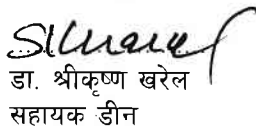 डा. श्रीकृष्ण खरेल
सहायक डीन